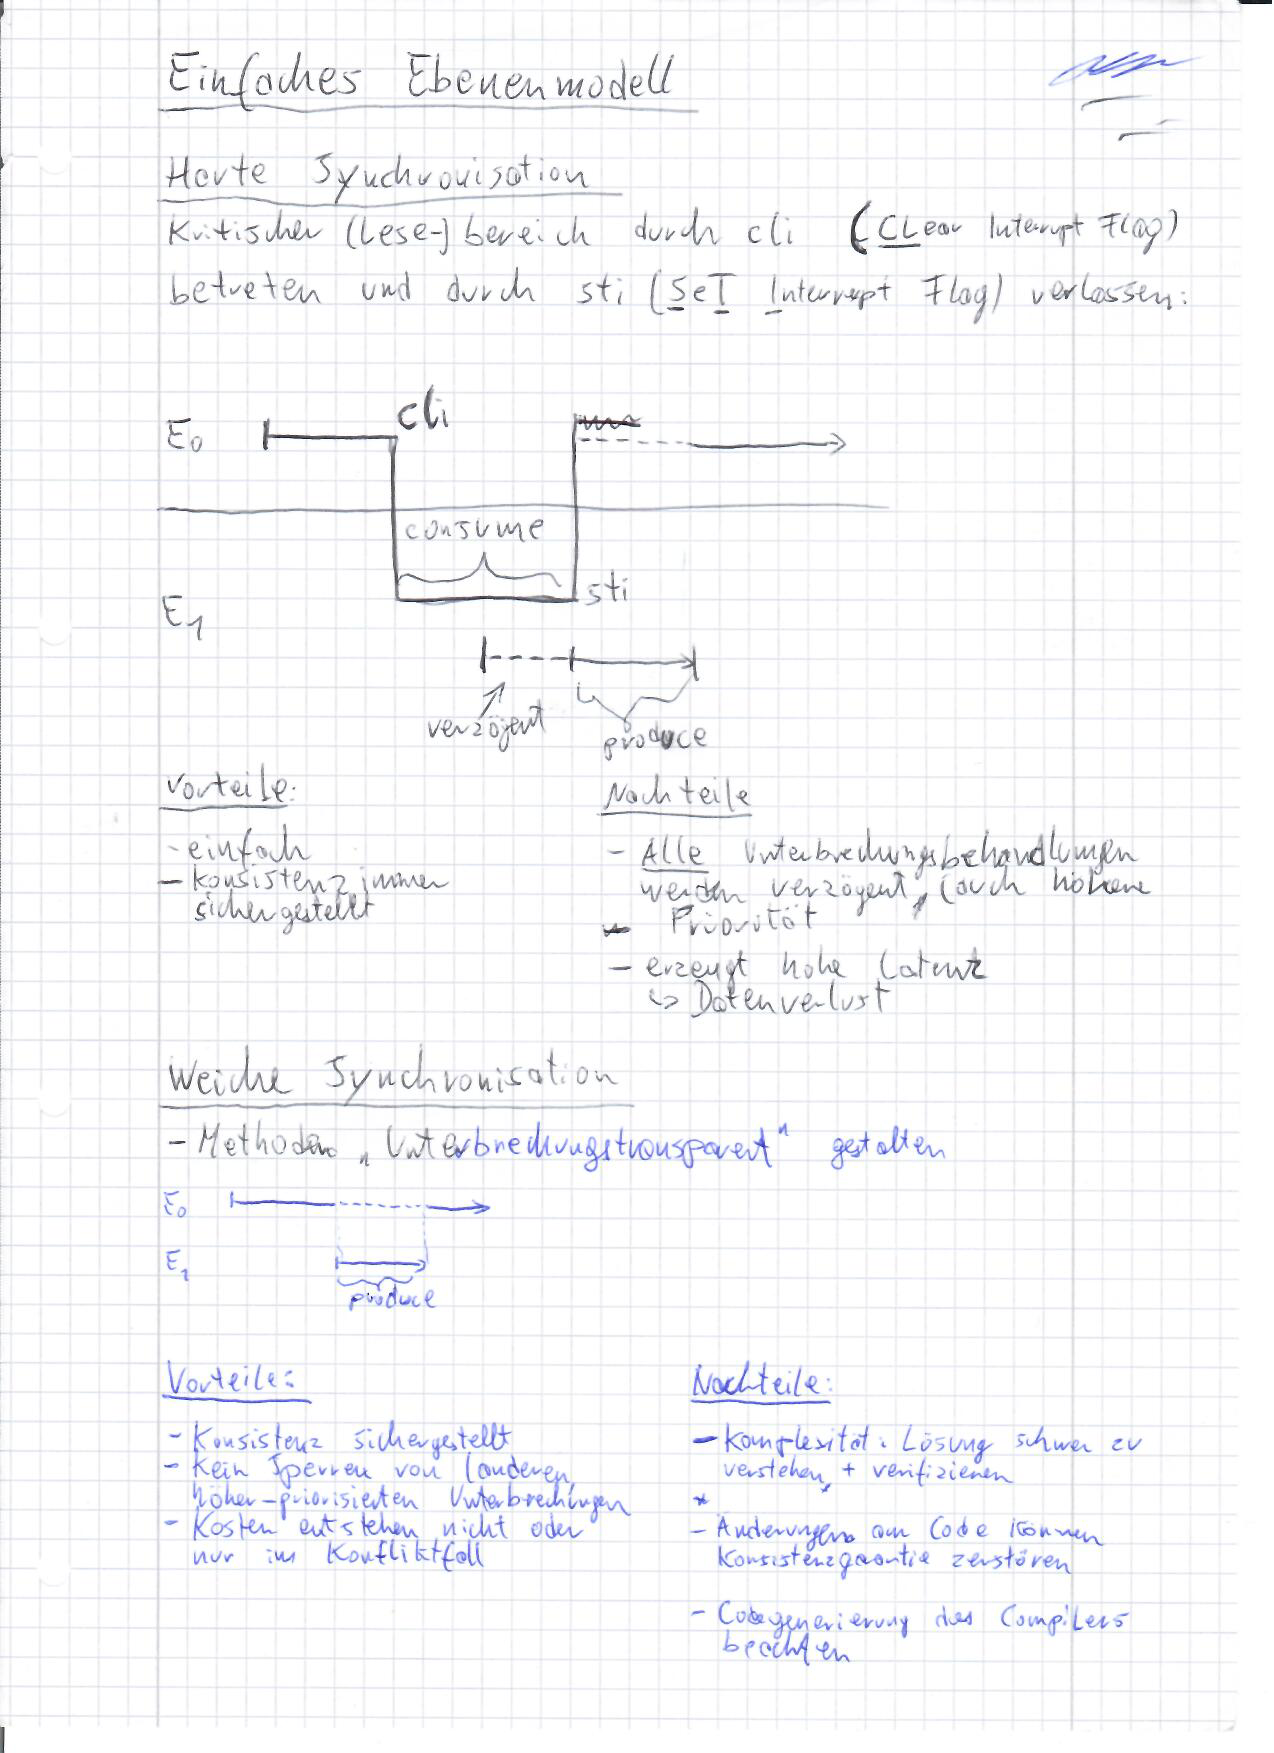 Einfaches Ebenenmodell
Harte Synchronisation
Kritischer (Lese-) bereich durch cli (CLear Interrupt Flag)
betreten und durch sti (SeT Interrupt Flag) verlassen:
E0
cli
consume
E1
sti
verzögert
produce
Vorteile:
- einfach
- Konsistenz immer
sichergestellt
Nachteile
- Alle Unterbrechungsbehandlungen
werden verzögert, (auch höhere
Priorität
- erzeugt hohe Latenz
↳ Datenverlust
Weiche Synchronisation
- Methoden „Unterbrechungstransparent" gestalten
E0
E1
produce
Vorteile:
- Konsistenz sichergestellt
- Kein Sperren von (anderen,
höher-priorisierten Unterbrechungen
- Kosten entstehen nicht oder
nur im Konfliktfall
Nachteile:
- Komplexität: Lösung schwer zu
verstehen, + verifizieren
*
- Änderungen am Code können
Konsistenzgarantie zerstören
- Codegenerierung des Compilers
beachten